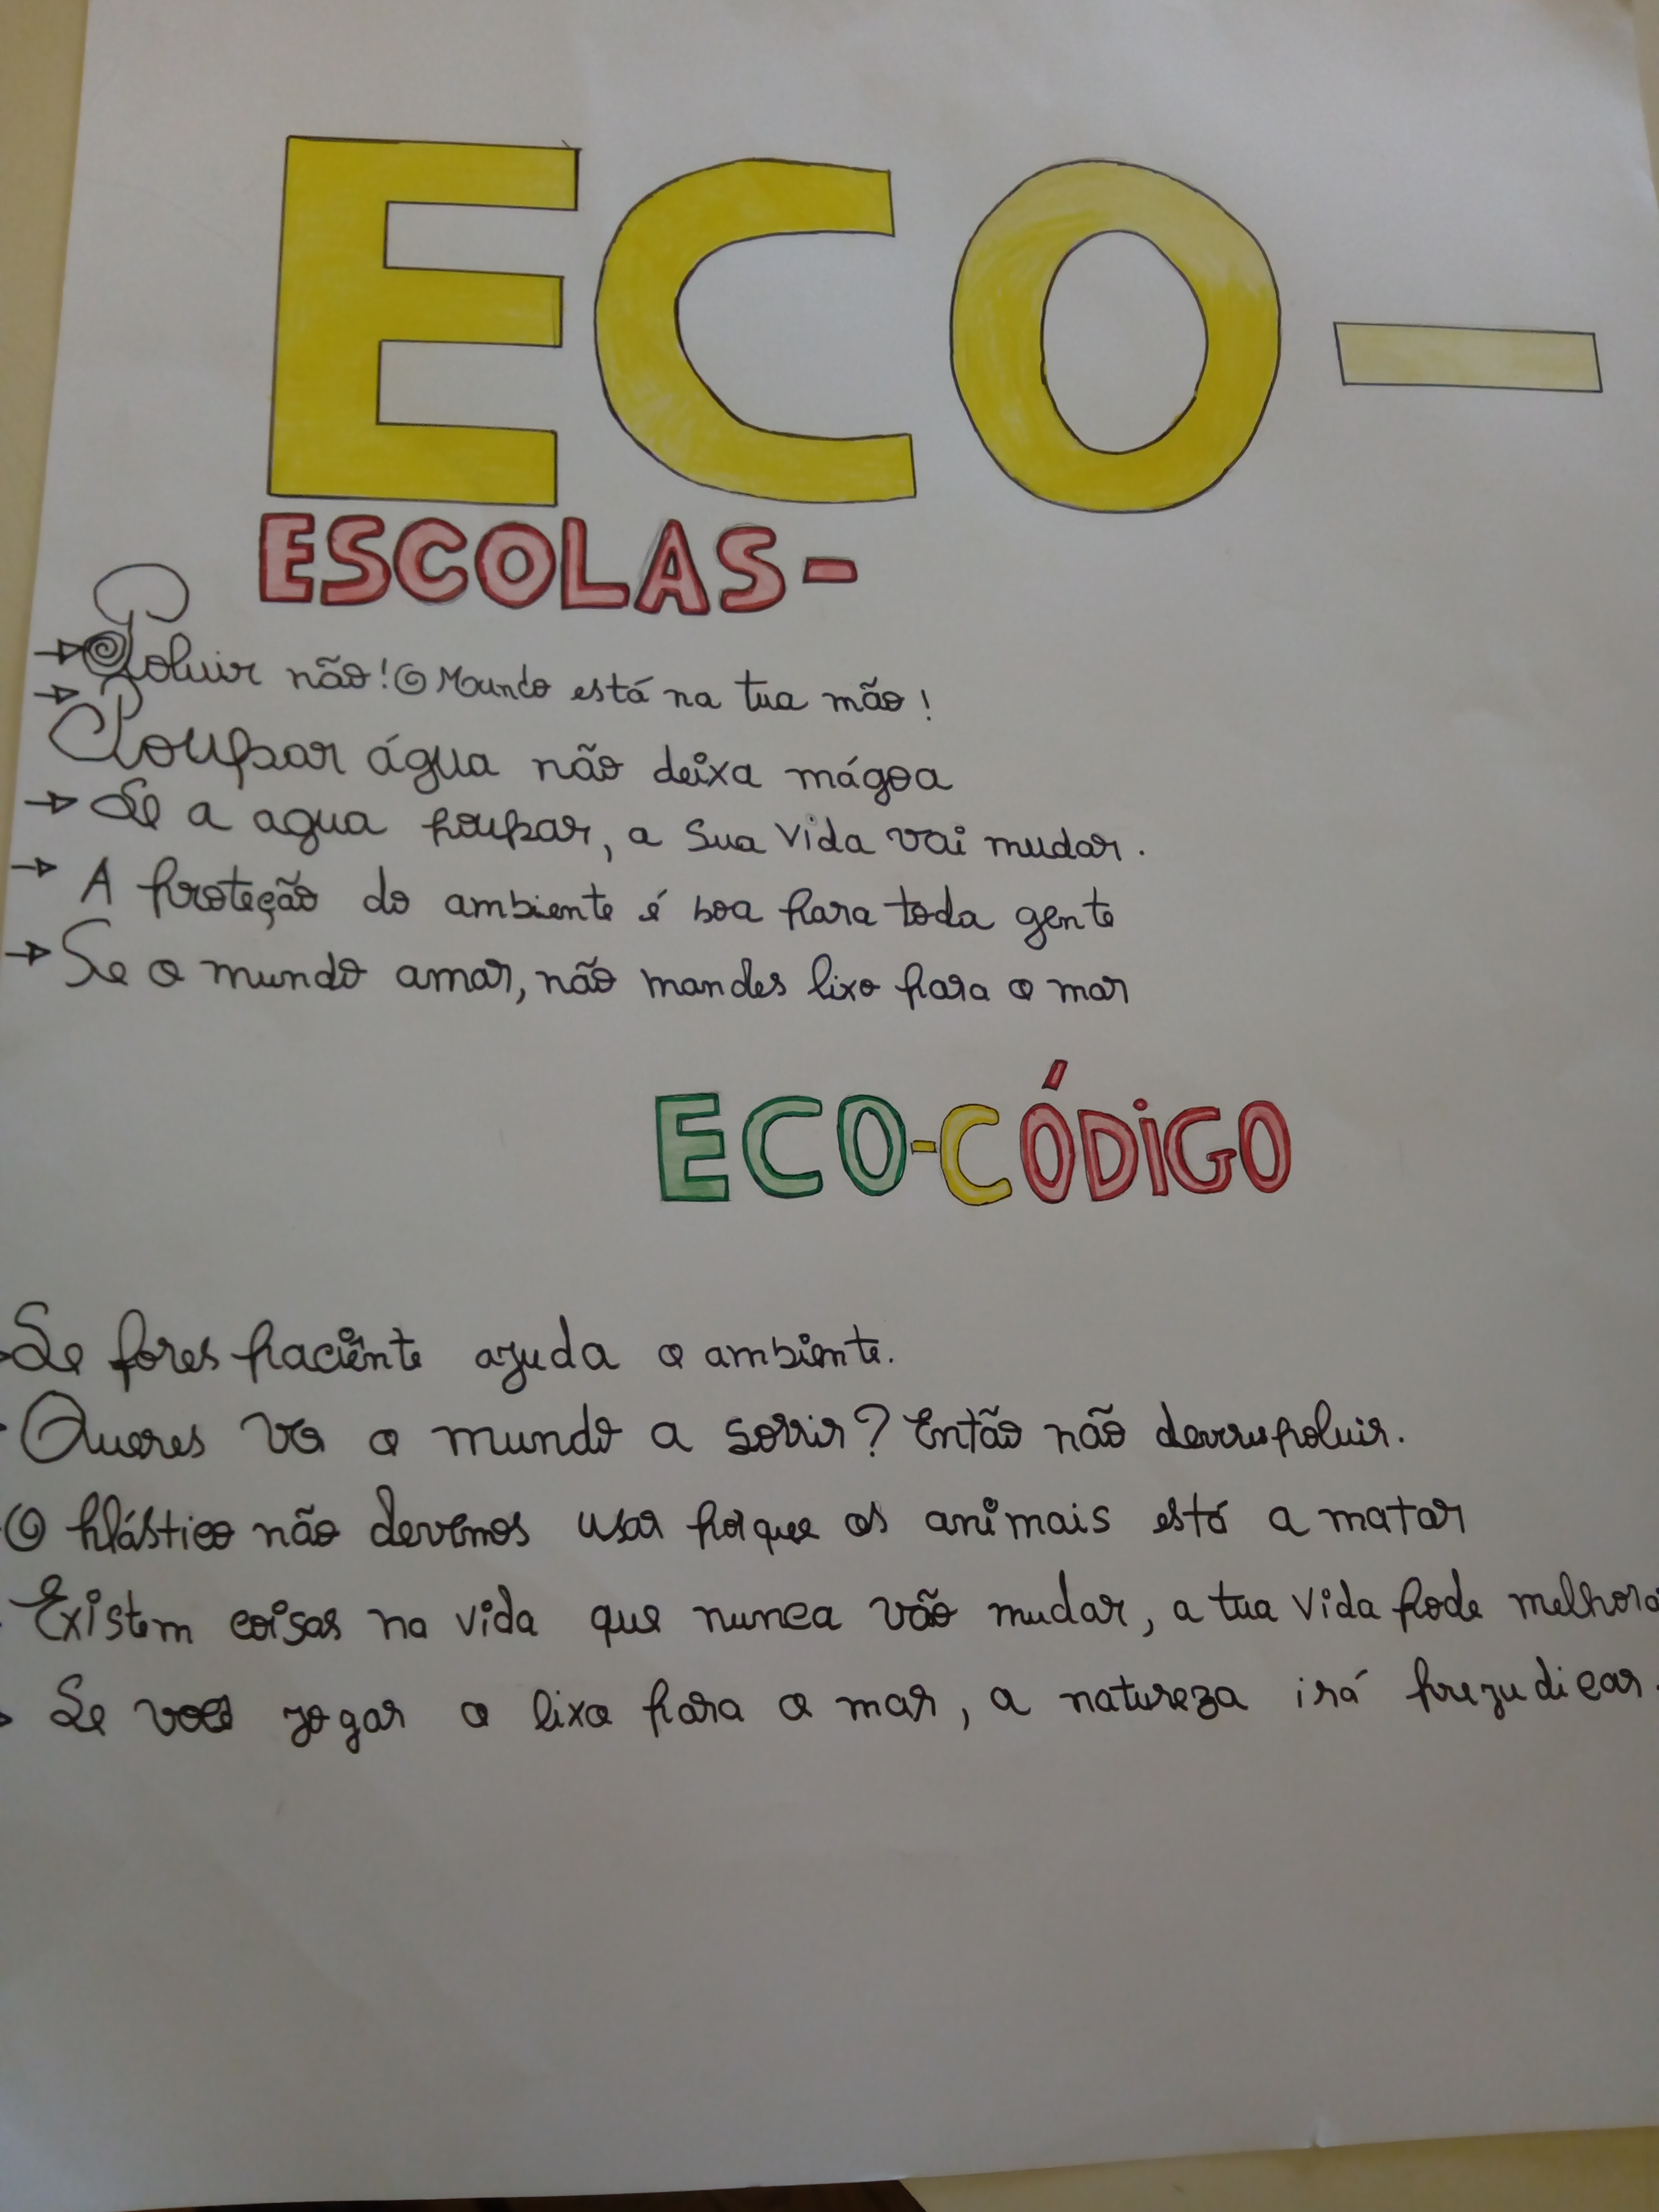 ECO-
ESCOLAS-
Poluir não! O Mundo está na tua mão!
Poupar água não deixa mágoa
Se a agua poupar, a sua vida vai mudar.
A proteção do ambiente é boa para toda gente
Se o mundo amar, não mandes lixo para o mar
ECO-CÓDIGO
Se fores paciênte ajuda o ambiente.
Queres ver o mundo a sorrir? Então não deves poluir.
O plástico não devemos usar porque os animais está a matar
Existem coisas na vida que nunca vão mudar, a tua vida pode melhora
Se você jogar o lixo para o mar, a natureza irá prejudicar.